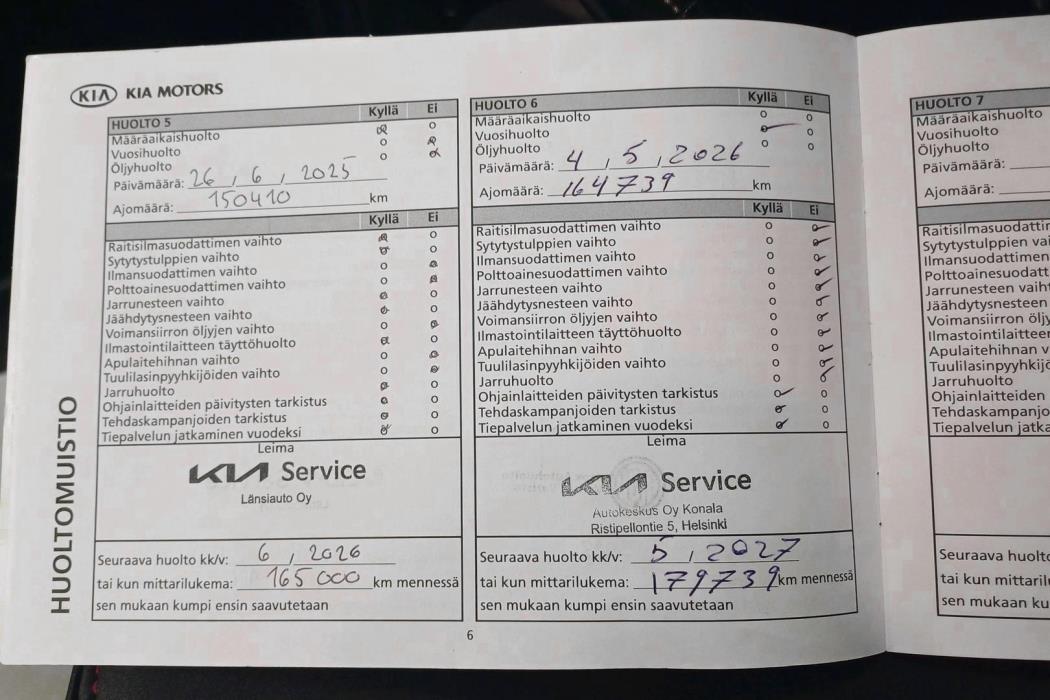 KIA KIA MOTORS
HUOLTOMUISTIO
HUOLTO 5 Kyllä Ei
Määräaikaishuolto
Vuosihuolto
Öljyhuolto
Päivämäärä: 26, 6, 2025
Ajomäärä: 150410 km
Kyllä Ei
Raitisilmasuodattimen vaihto
Sytytystulppien vaihto
Ilmansuodattimen vaihto
Polttoainesuodattimen vaihto
Jarrunesteen vaihto
Jäähdytysnesteen vaihto
Voimansiirron öljyjen vaihto
Ilmastointilaitteen täyttöhuolto
Apulaitehihnan vaihto
Tuulilasinpyyhkijöiden vaihto
Jarruhuolto
Ohjainlaitteiden päivitysten tarkistus
Tehdaskampanjoiden tarkistus
Tiepalvelun jatkaminen vuodeksi
Leima
KIA Service
Länsiauto Oy
Seuraava huolto kk/v: 6, 2026
tai kun mittarilukema: 165000 km mennessä
sen mukaan kumpi ensin saavutetaan
HUOLTO 6 Kyllä Ei
Määräaikaishuolto
Vuosihuolto
Öljyhuolto
Päivämäärä: 4, 5, 2026
Ajomäärä: 164739 km
Kyllä Ei
Raitisilmasuodattimen vaihto
Sytytystulppien vaihto
Ilmansuodattimen vaihto
Polttoainesuodattimen vaihto
Jarrunesteen vaihto
Jäähdytysnesteen vaihto
Voimansiirron öljyjen vaihto
Ilmastointilaitteen täyttöhuolto
Apulaitehihnan vaihto
Tuulilasinpyyhkijöiden vaihto
Jarruhuolto
Ohjainlaitteiden päivitysten tarkistus
Tehdaskampanjoiden tarkistus
Tiepalvelun jatkaminen vuodeksi
Leima
KIA Service
Autokeskus Oy Konala
Ristipellontie 5, Helsinki
Seuraava huolto kk/v: 5, 2027
tai kun mittarilukema: 179739 km mennessä
sen mukaan kumpi ensin saavutetaan
6
HUOLTO 7
Määräaikaishuolto
Vuosihuolto
Öljyhuolto
Päivämäärä:
Ajomäärä:
Raitisilmasuodattim
Sytytystulppien vai
Ilmansuodattimen
Polttoainesuodatt
Jarrunesteen vaiht
Jäähdytysnesteen
Voimansiirron öljy
Ilmastointilaitteen
Apulaitehihnan v
Tuulilasinpyyhkijö
Jarruhuolto
Ohjainlaitteiden
Tehdaskampanjo
Tiepalvelun jatka
Seuraava huolto
tai kun mittaril
sen mukaan ku